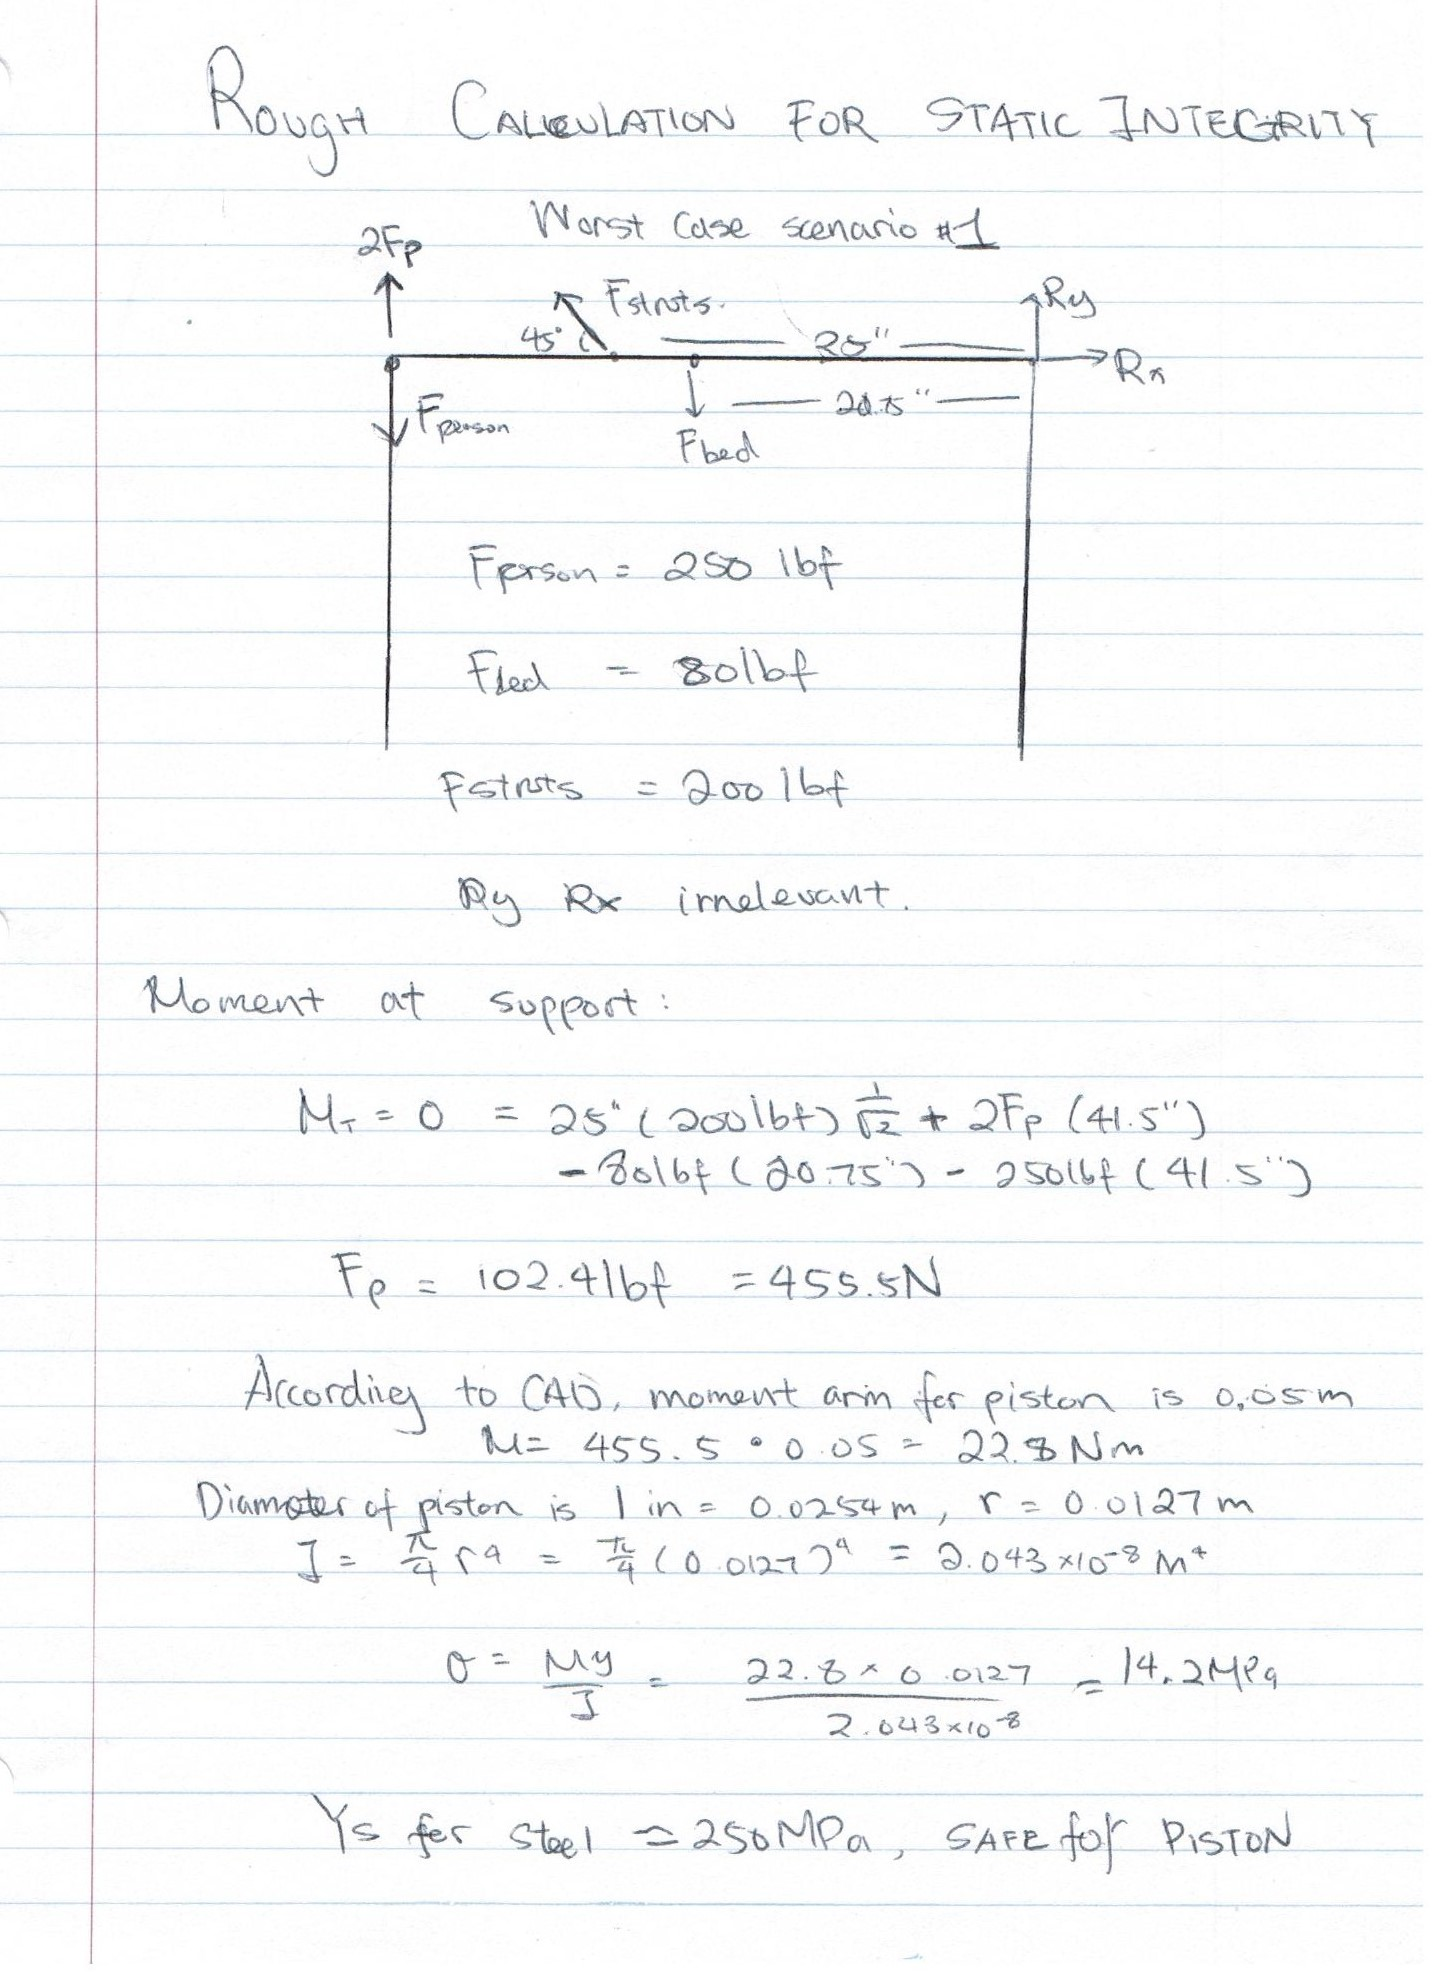 Rough CALCULATION FOR STATIC INTEGRITY
Worst Case scenario #1
2Fp
Fstruts.
Ry
45°
25"
Rx
20.75"
Fperson
Fbed
Fperson = 250 lbf
Fbed = 80lbf
Fstruts = 200 lbf
Ry Rx irrelevant.
Moment at support:
M_T = 0 = 25" (200lbf) 1/√2 + 2Fp (41.5")
- 80lbf (20.75") - 250lbf (41.5")
Fp = 102.4lbf = 455.5N
According to CAD, moment arm for piston is 0.05m
M = 455.5 • 0.05 = 22.8 Nm
Diameter of piston is 1 in = 0.0254m, r = 0.0127m
I = π/4 r⁴ = π/4 (0.0127)⁴ = 2.043 ×10⁻⁸ m⁴
σ = My/I = 22.8 × 0.0127 / 2.043×10⁻⁸ = 14.2MPa
Ys for steel = 250MPa, SAFE for PISTON